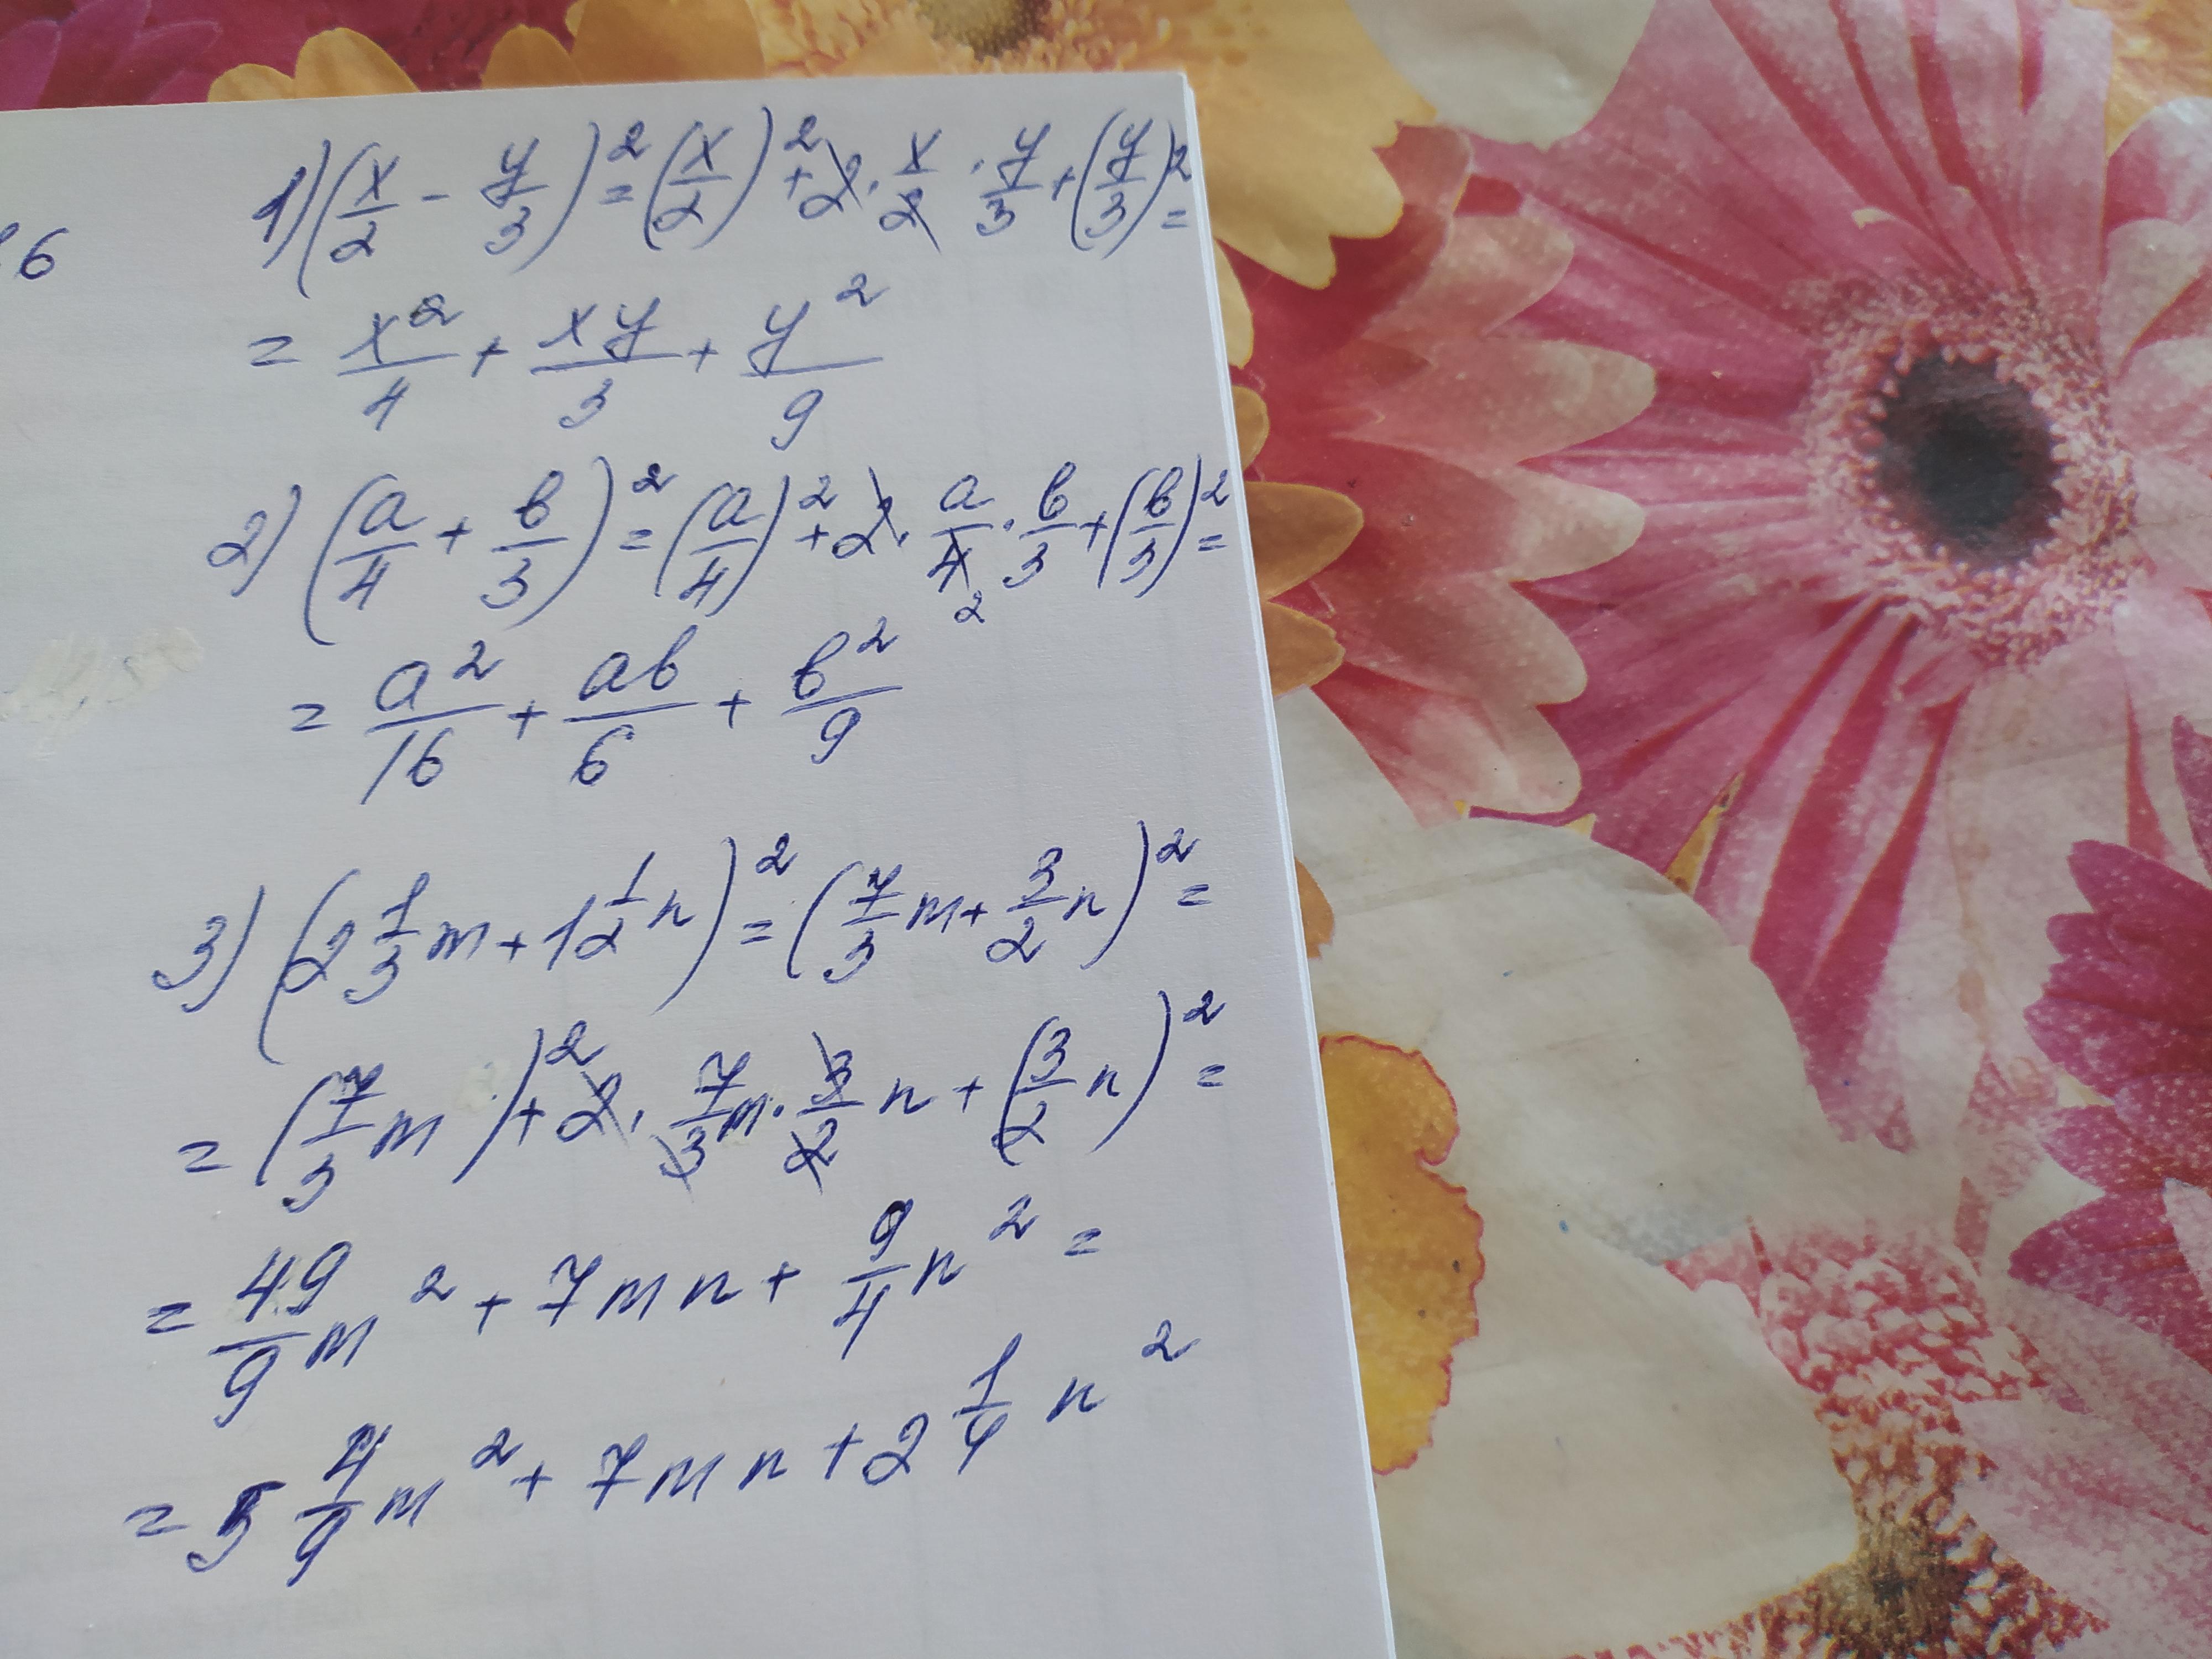 6
1) (x/2 - y/3)² = (x/2)² + 2 · x/2 · y/3 + (y/3)² =
= x²/4 + xy/3 + y²/9
2) (a/4 + b/3)² = (a/4)² + 2 · a/4 2 · b/3 + (b/3)² =
= a²/16 + ab/6 + b²/9
3) (2 1/3 m + 1 1/2 n)² = (7/3 m + 3/2 n)² =
= (7/3 m)² + 2 · 7/3 m · 3/2 n + (3/2 n)² =
= 49/9 m² + 7mn + 9/4 n² =
= 5 4/9 m² + 7mn + 2 1/4 n²